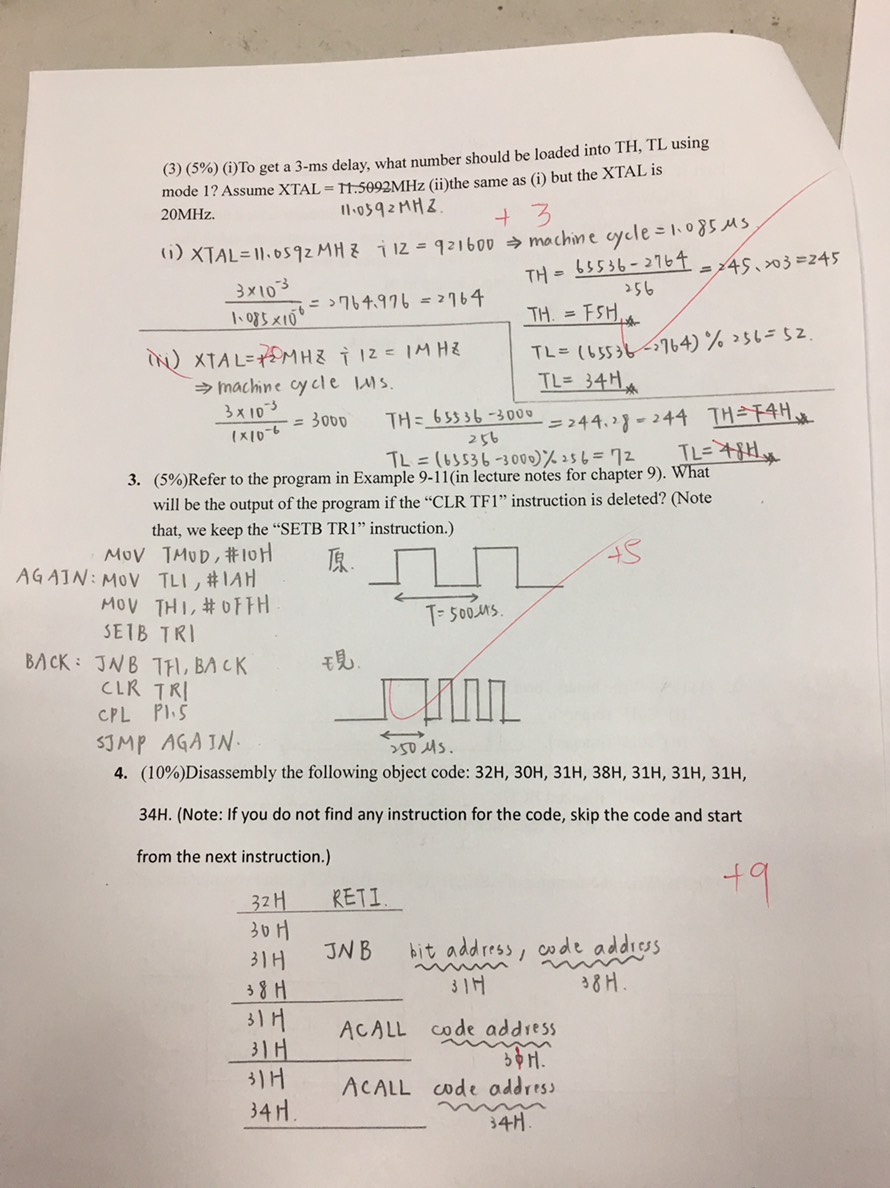 (3) (5%) (i)To get a 3-ms delay, what number should be loaded into TH, TL using
mode 1? Assume XTAL = 11.5092MHz (ii)the same as (i) but the XTAL is
20MHz.
11.0592MHZ.
+ 3
(i) XTAL=11.0592MHZ ÷12 = 921600 ⇒ machine cycle = 1.085μs
3×10^-3 / 1.085×10^-6 = 2764.976 = 2764
TH = 65536-2764 / 256 = 245.203 = 245
TH = F5H
TL = (65536-2764) % 256 = 52.
TL = 34H
(ii) XTAL= 20MHZ ÷12 = 1MHZ
⇒ machine cycle 1μs.
3×10^-3 / 1×10^-6 = 3000
TH = 65536-3000 / 256 = 244.28 = 244 TH=F4H
TL = (65536-3000)%256 = 72 TL=48H
3. (5%)Refer to the program in Example 9-11(in lecture notes for chapter 9). What
will be the output of the program if the “CLR TF1” instruction is deleted? (Note
that, we keep the “SETB TR1” instruction.)
+5
MOV TMOD, #10H
AGAIN: MOV TL1, #1AH
MOV TH1, #0FFH
SETB TR1
BACK: JNB TF1, BACK
CLR TR1
CPL P1.5
SJMP AGAIN.
原.
T=500μs.
現.
250μs.
4. (10%)Disassembly the following object code: 32H, 30H, 31H, 38H, 31H, 31H, 31H,
34H. (Note: If you do not find any instruction for the code, skip the code and start
from the next instruction.)
+9
32H RETI.
30H
31H JNB bit address, code address
38H 31H 38H.
31H ACALL code address
31H
31H ACALL code address
34H. 34H.